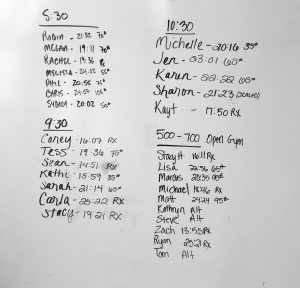 5:30
Robin - 21:52 75#
Megan - 19:11 70#
Rachel - 19:36 R
Melissa - 24:02 55#
Phil - 20:55 75#
Chris - 24:07 105#
Sydney - 20:02 55#
9:30
Corey - 16:07 RX
Tess - 19:36 75#
Sean - 14:51 RX
Kathi - 15:59 35#
Sarah - 21:14 65#
Carla - 25:22 RX
Stacy - 19:21 RX
10:30
Michelle - 20:16 35#
Jen - 23:01 65#
Karen - 22:22 65#
Sharon - 21:23 (scaled)
Kayt - 17:50 RX
500-700 Open Gym
Stacy H 16:11 RX
Lisa 22:36 65#
Marcus 20:35 95#
Michael 18:46 RX
Matt 24:24 95#
Kathryn Alt
Steve Alt
Zach 13:55 RX
Ryan 25:21 RX
Tom Alt